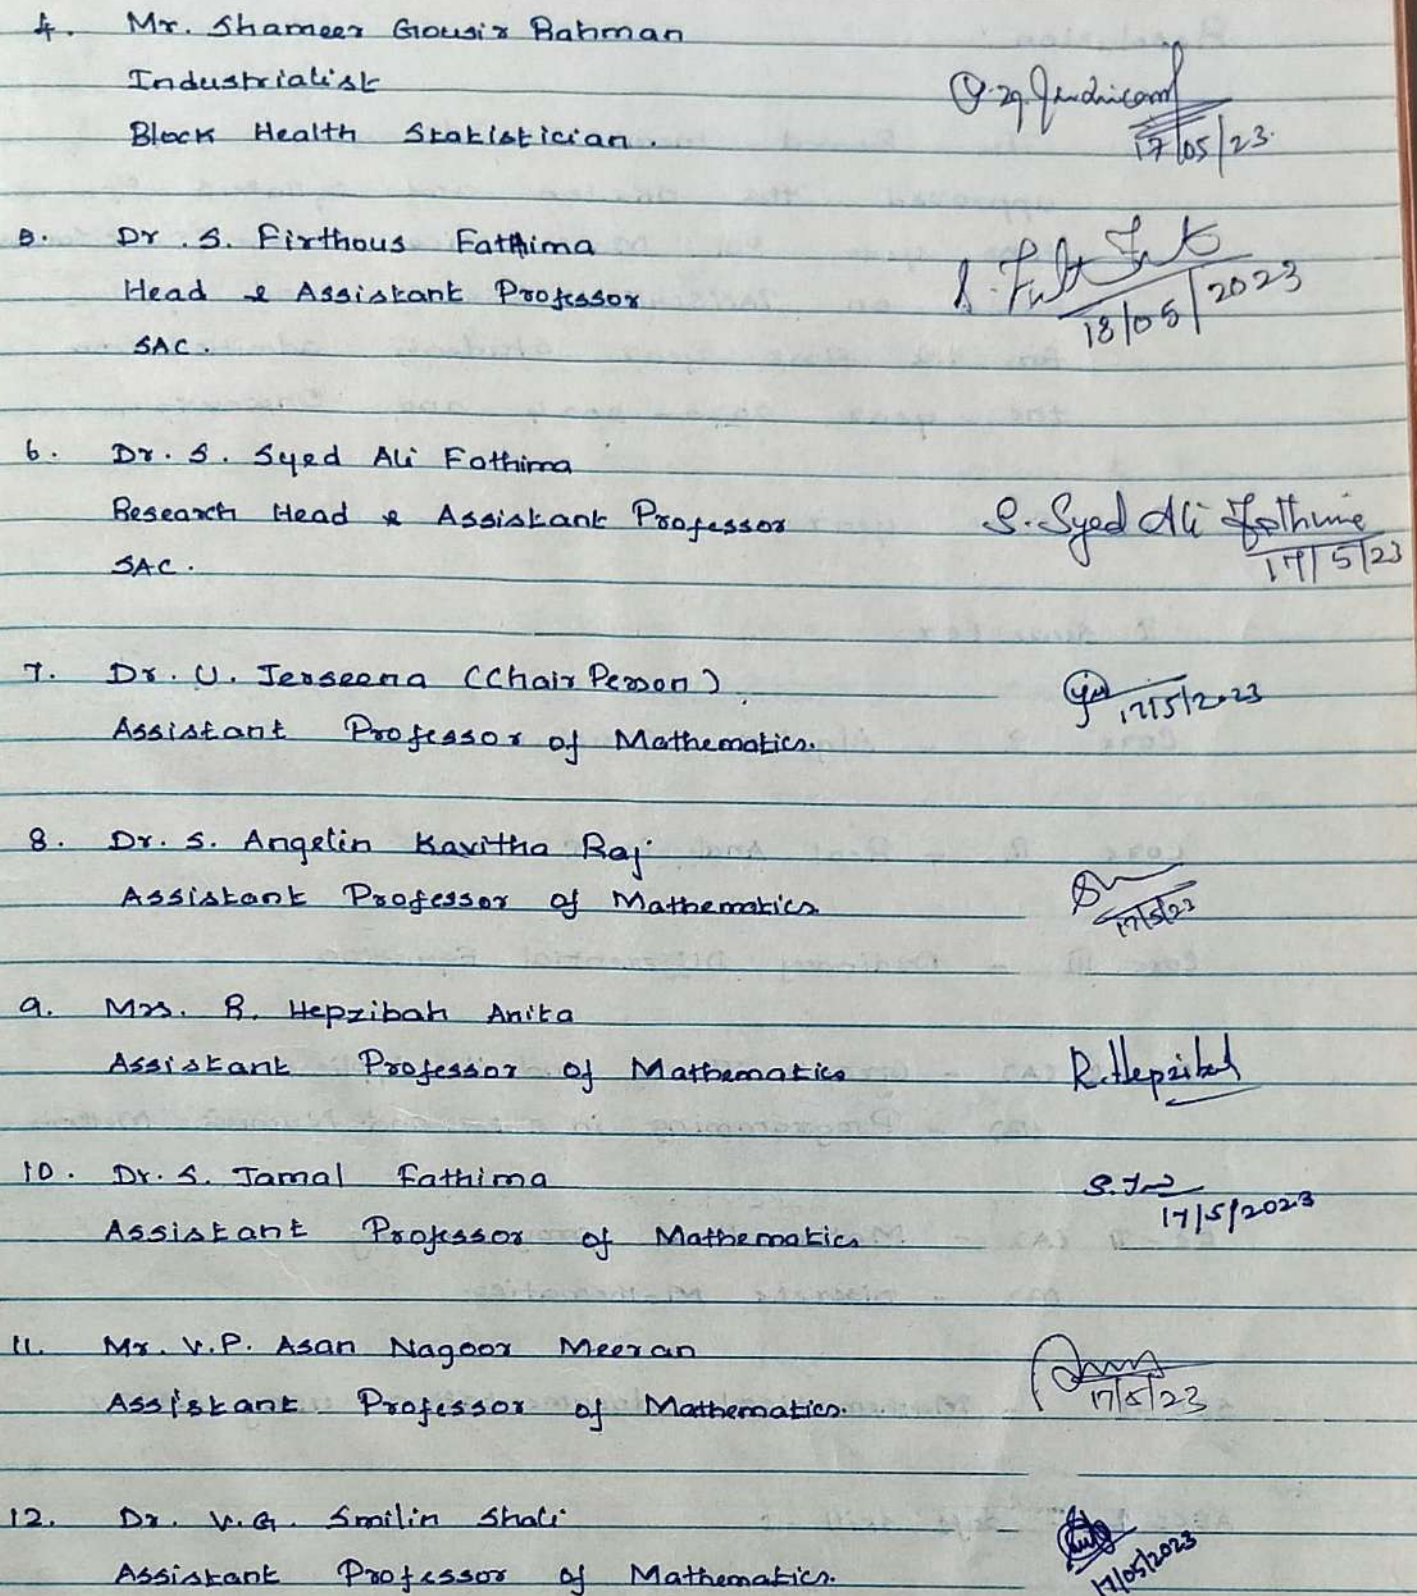 4. Mr. Shameer Gousir Rahman
Industrialist
Block Health Statistician.
17/05/23.
5. Dr. S. Firthous Fathima
Head & Assistant Professor
SAC.
18/05/2023
6. Dr. S. Syed Ali Fathima
Research Head & Assistant Professor
SAC.
S. Syed Ali Fathima
17/5/23
7. Dr. U. Jerseena (Chair Person)
Assistant Professor of Mathematics.
17/5/2023
8. Dr. S. Angelin Kavitha Raj
Assistant Professor of Mathematics
17/5/23
9. Mrs. R. Hepzibah Anita
Assistant Professor of Mathematics
R. Hepzibah
10. Dr. S. Jamal Fathima
Assistant Professor of Mathematics
17/5/2023
11. Mr. V.P. Asan Nagoor Meeran
Assistant Professor of Mathematics.
17/5/23
12. Dr. V.G. Smilin Shali
Assistant Professor of Mathematics.
17/05/2023